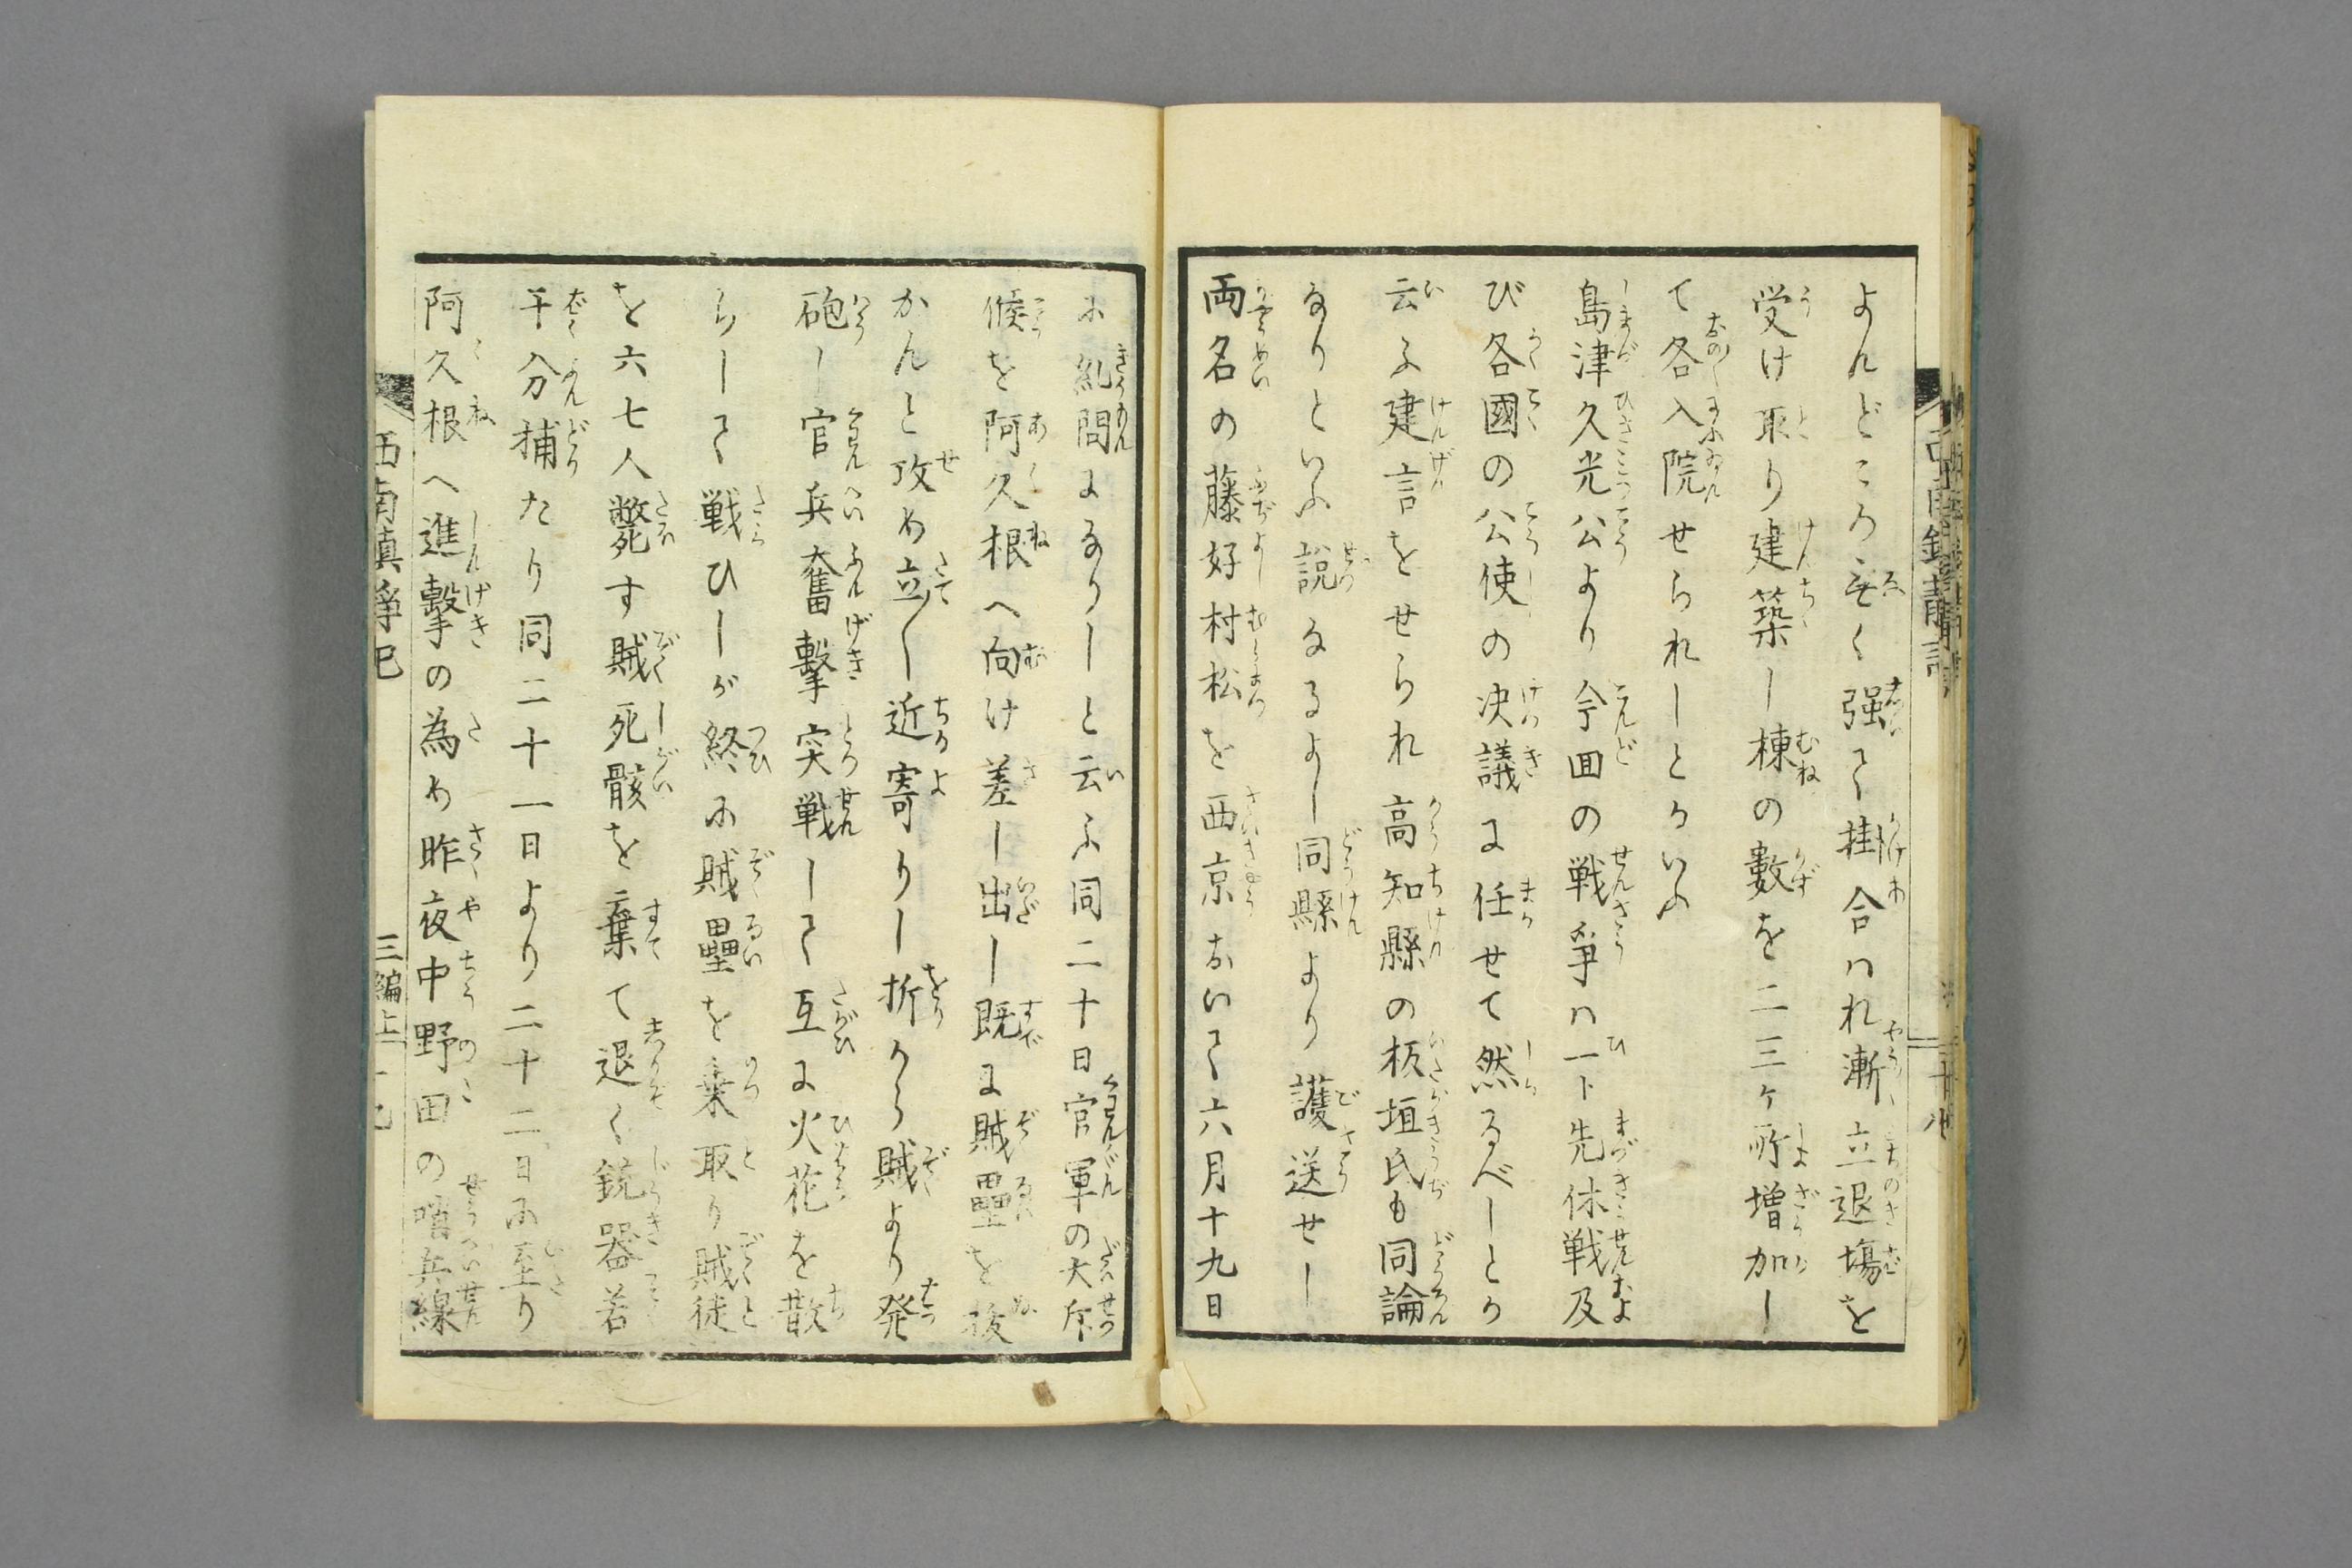 よんどころなく強て掛合はれ漸〻立退場を
受け取り建築し棟の數を二三ヶ所増加し
て各入院せられしとかいふ
島津久光公より今回の戦爭ハ一ト先休戦及
び各國の公使の决議に任せて然るべしとか
云ふ建言をせられ高知縣の板垣氏も同論
なりといふ説なるよし同縣より護送せし
両名の藤好村松を西京おいて六月十九日
に糺問になりしと云ふ同二十日官軍の大斥
候を阿久根へ向け差し出し既に賊壘を抜
かんと攻め立〳〵近寄りし折から賊より発
砲し官兵奮擊突戦して互に火花を散
らして戦ひしが終に賊壘を乗取り賊徒
を六七人斃す賊死骸を棄て退く銃器若
干分捕たり同二十一日より二十二日に至り
阿久根へ進擊の為め昨夜中野田の哨兵線
西南慎爭記
三編上